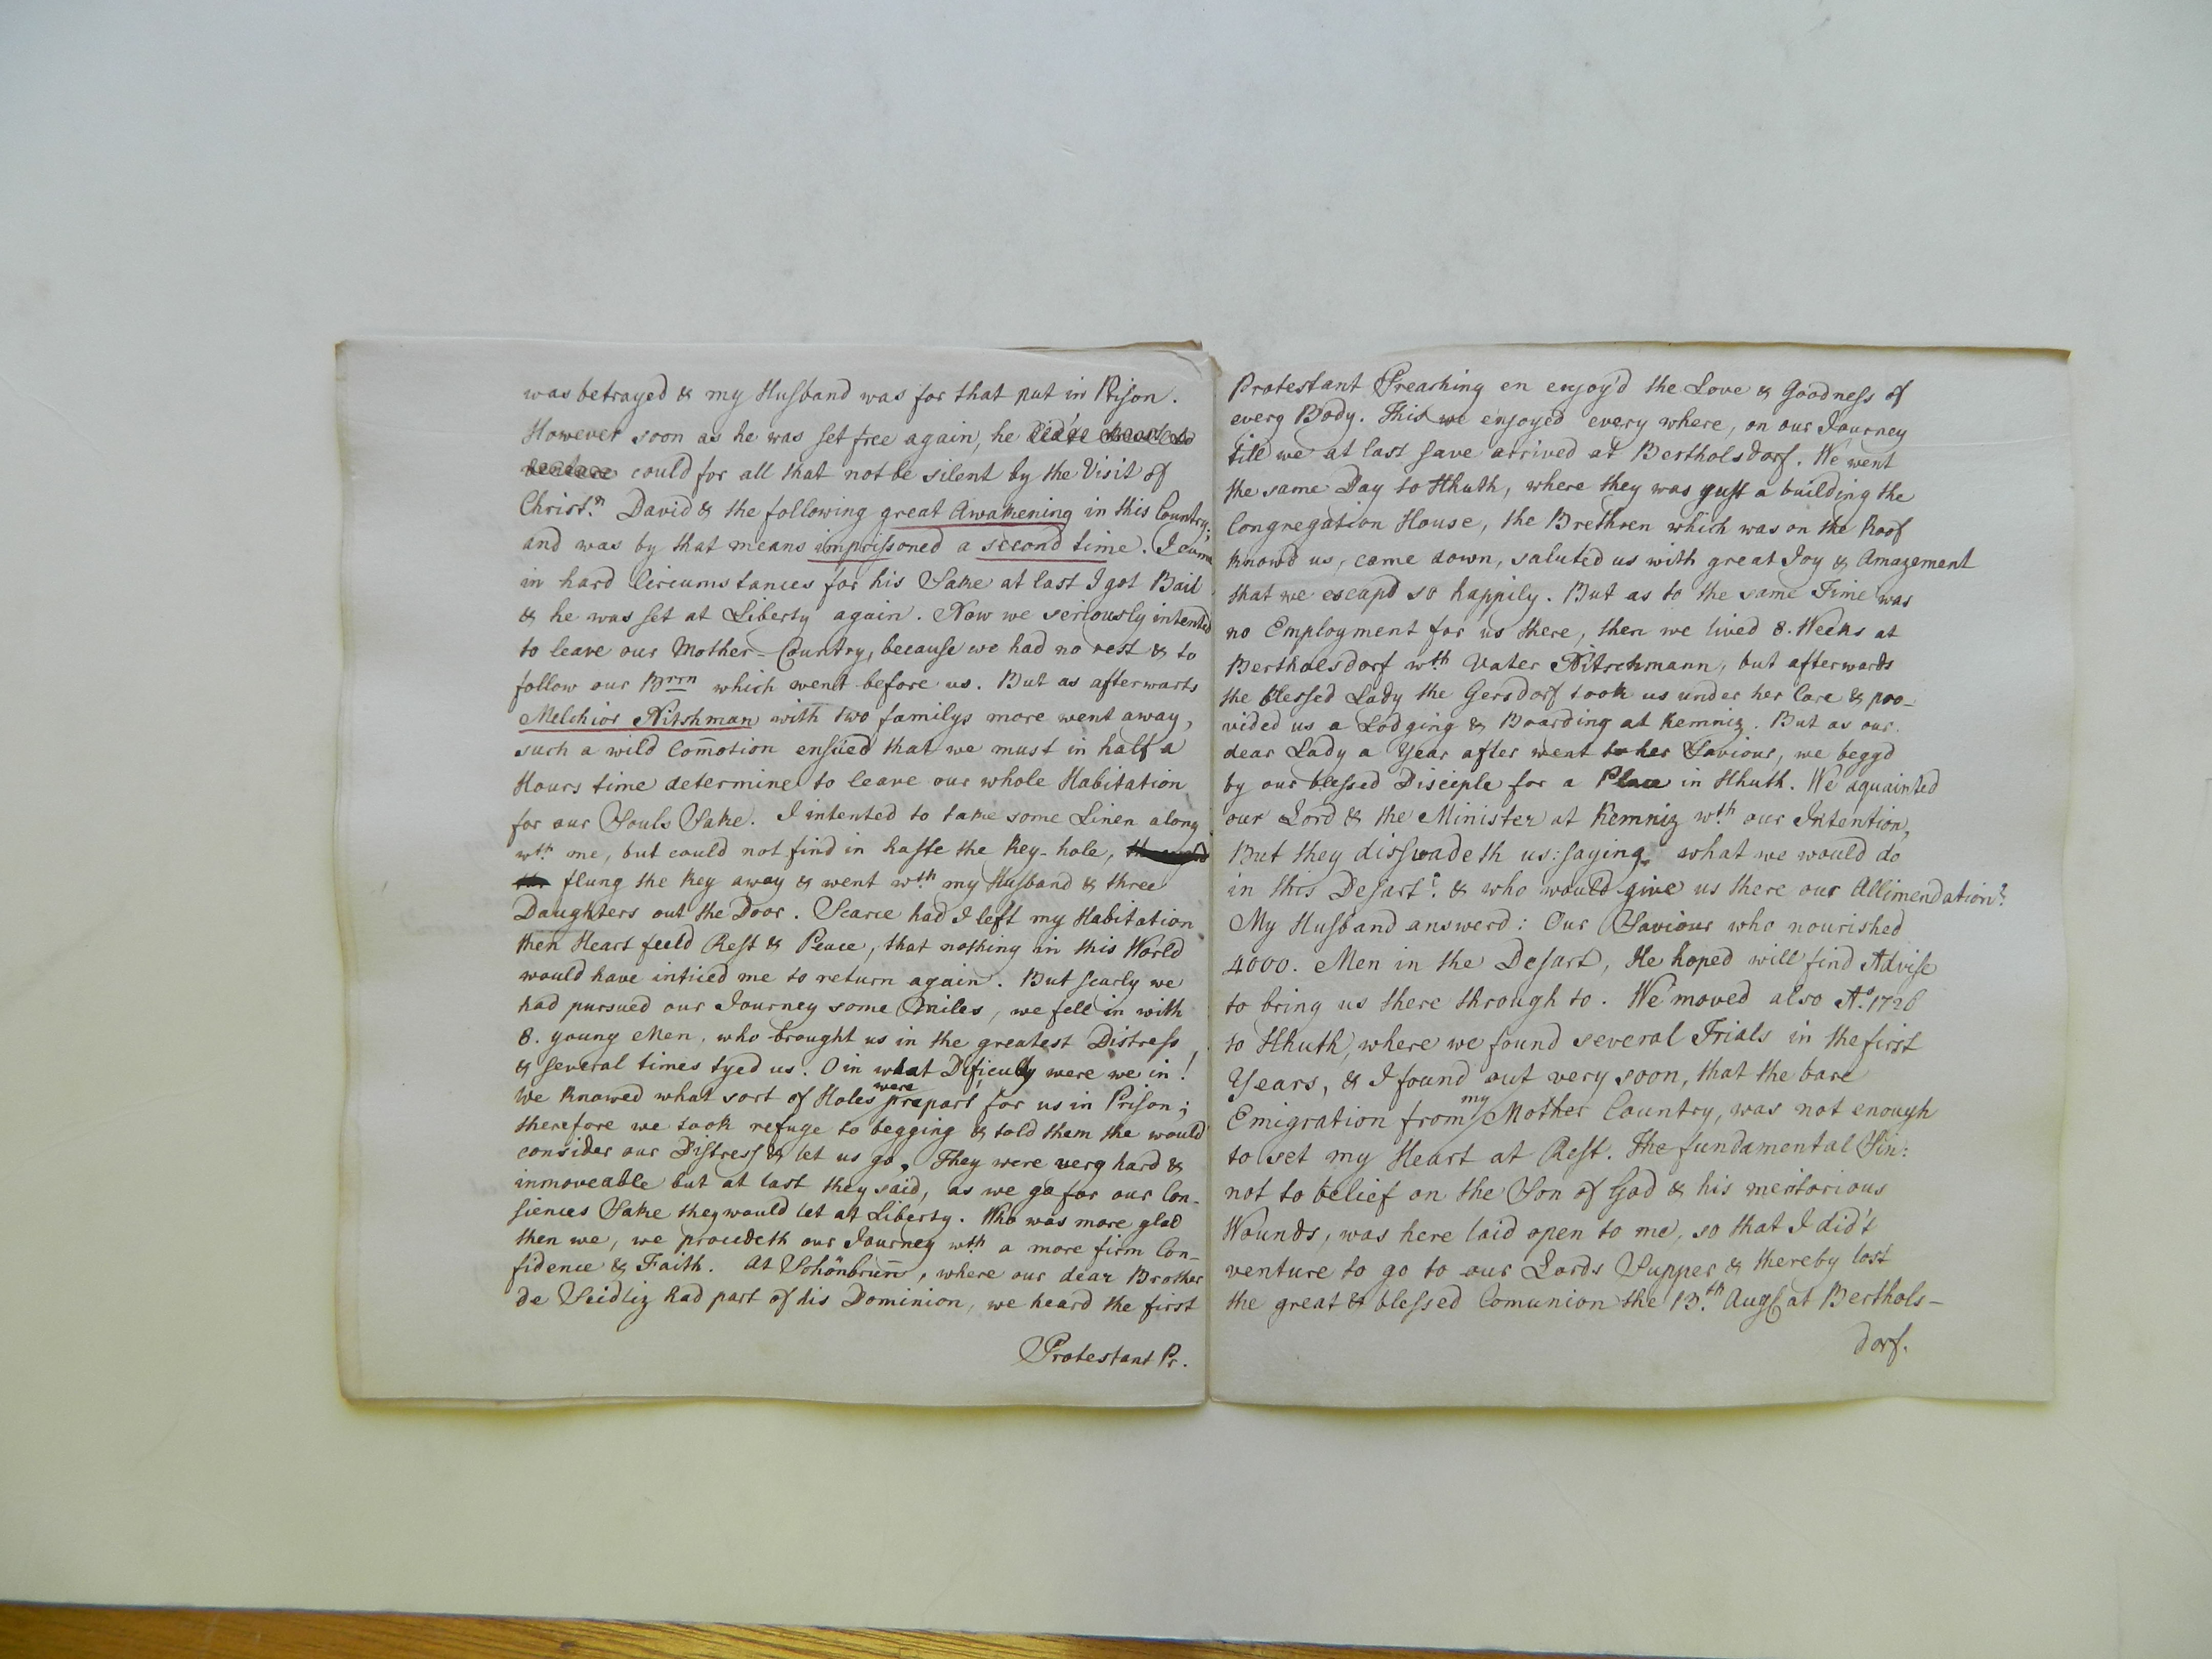 was betrayed & my Husband was for that put in Prison.
However soon as he was set free again, he did't
could for all that not be silent by the Visit of
Christ.n David & the following great Awakening in this Country;
and was by that means imprissoned a second time. I came
in hard Circumstances for his Sake at last I got Bail
& he was set at Liberty again. Now we seriously intented
to leave our Mother-Country, because we had no rest & to
follow our Brrn which went before us. But as afterwarts
Melchior Nitshman with two familys more went away,
such a wild Com̄otion ensüed that we must in half a
Hours time determine to leave our whole Habitation
for our Souls Sake. I intented to take some Linen along
wth. me, but could not find in haste the Key-hole,
flung the Key away & went wth. my Husband & three
Daughters out the Door. Scarce had I left my Habitation
then Heart feeld Rest & Peace, that nothing in this World
would have inticed me to return again. But scarly we
had pursued our Journey some Miles, we fell in with
8. young Men, who brought us in the greatest Distress,
& several times tyed us. O in what Dificulty were we in!
We knowed what sort of Holes were prepart for us in Prison;
therefore we took refuge to begging & told them the would
consider our Distress & let us go. They were verg hard &
inmoveable but at last they said, as we go for our Con-
siences Sake they would let at Liberty. Who was more glad
then we, we procudeth our Journey wth. a more firm Con-
fidence & Faith. At Schönbrun̄, where our dear Brother
de Seidliz had part of his Dominion, we heard the first
Protestant Pr.
Protestant Preaching en enjoy'd the Love & Goodness of
everg Body. This we enjoyed every where, on our Journey
till we at last save arrived at Bertholsdorf. We went
the same Day to Hhuth, where they was gust a building the
Congregation House, the Brethren which was on the Roof
knowd us, came down, saluted us with great Joy & Amazement
that we escapd so happily. But as to the same Time was
no Employment for us there, then we lived 8. Weeks at
Bertholsdorf wth. Vater Nitschmann, but afterwards
the blessed Lady the Gersdorf took us under her Care & pro-
vided us a Lodging & Boarding at Kemniz. But as our
dear Lady a Year after went to her Saviour, we beggd
by our blessed Disciple for a Place in Hhuth. We aquainted
our Lord & the Minister at Kemniz wth. our Intention,
But they disswadeth us: saying, what we would do
in this Desart? & who would give us there our Allimendation?
My Husband answerd: Our Saviour who nourished
4000. Men in the Desart, He hoped will find Advise
to bring us there through to. We moved also Ao. 1726
to Hhuth, where we found several Trials in the first
Years, & I found out very soon, that the bare
Emigration from my Mother Country, was not enough
to set my Heart at Rest. The fundamental Sin:
not to belief on the Son of God & his meritorious
Wounds, was here laid open to me, so that I did't
venture to go to our Lords Supper & thereby lost
the great & blessed Comunion the 13.th Aug at Berthols-
dorf.